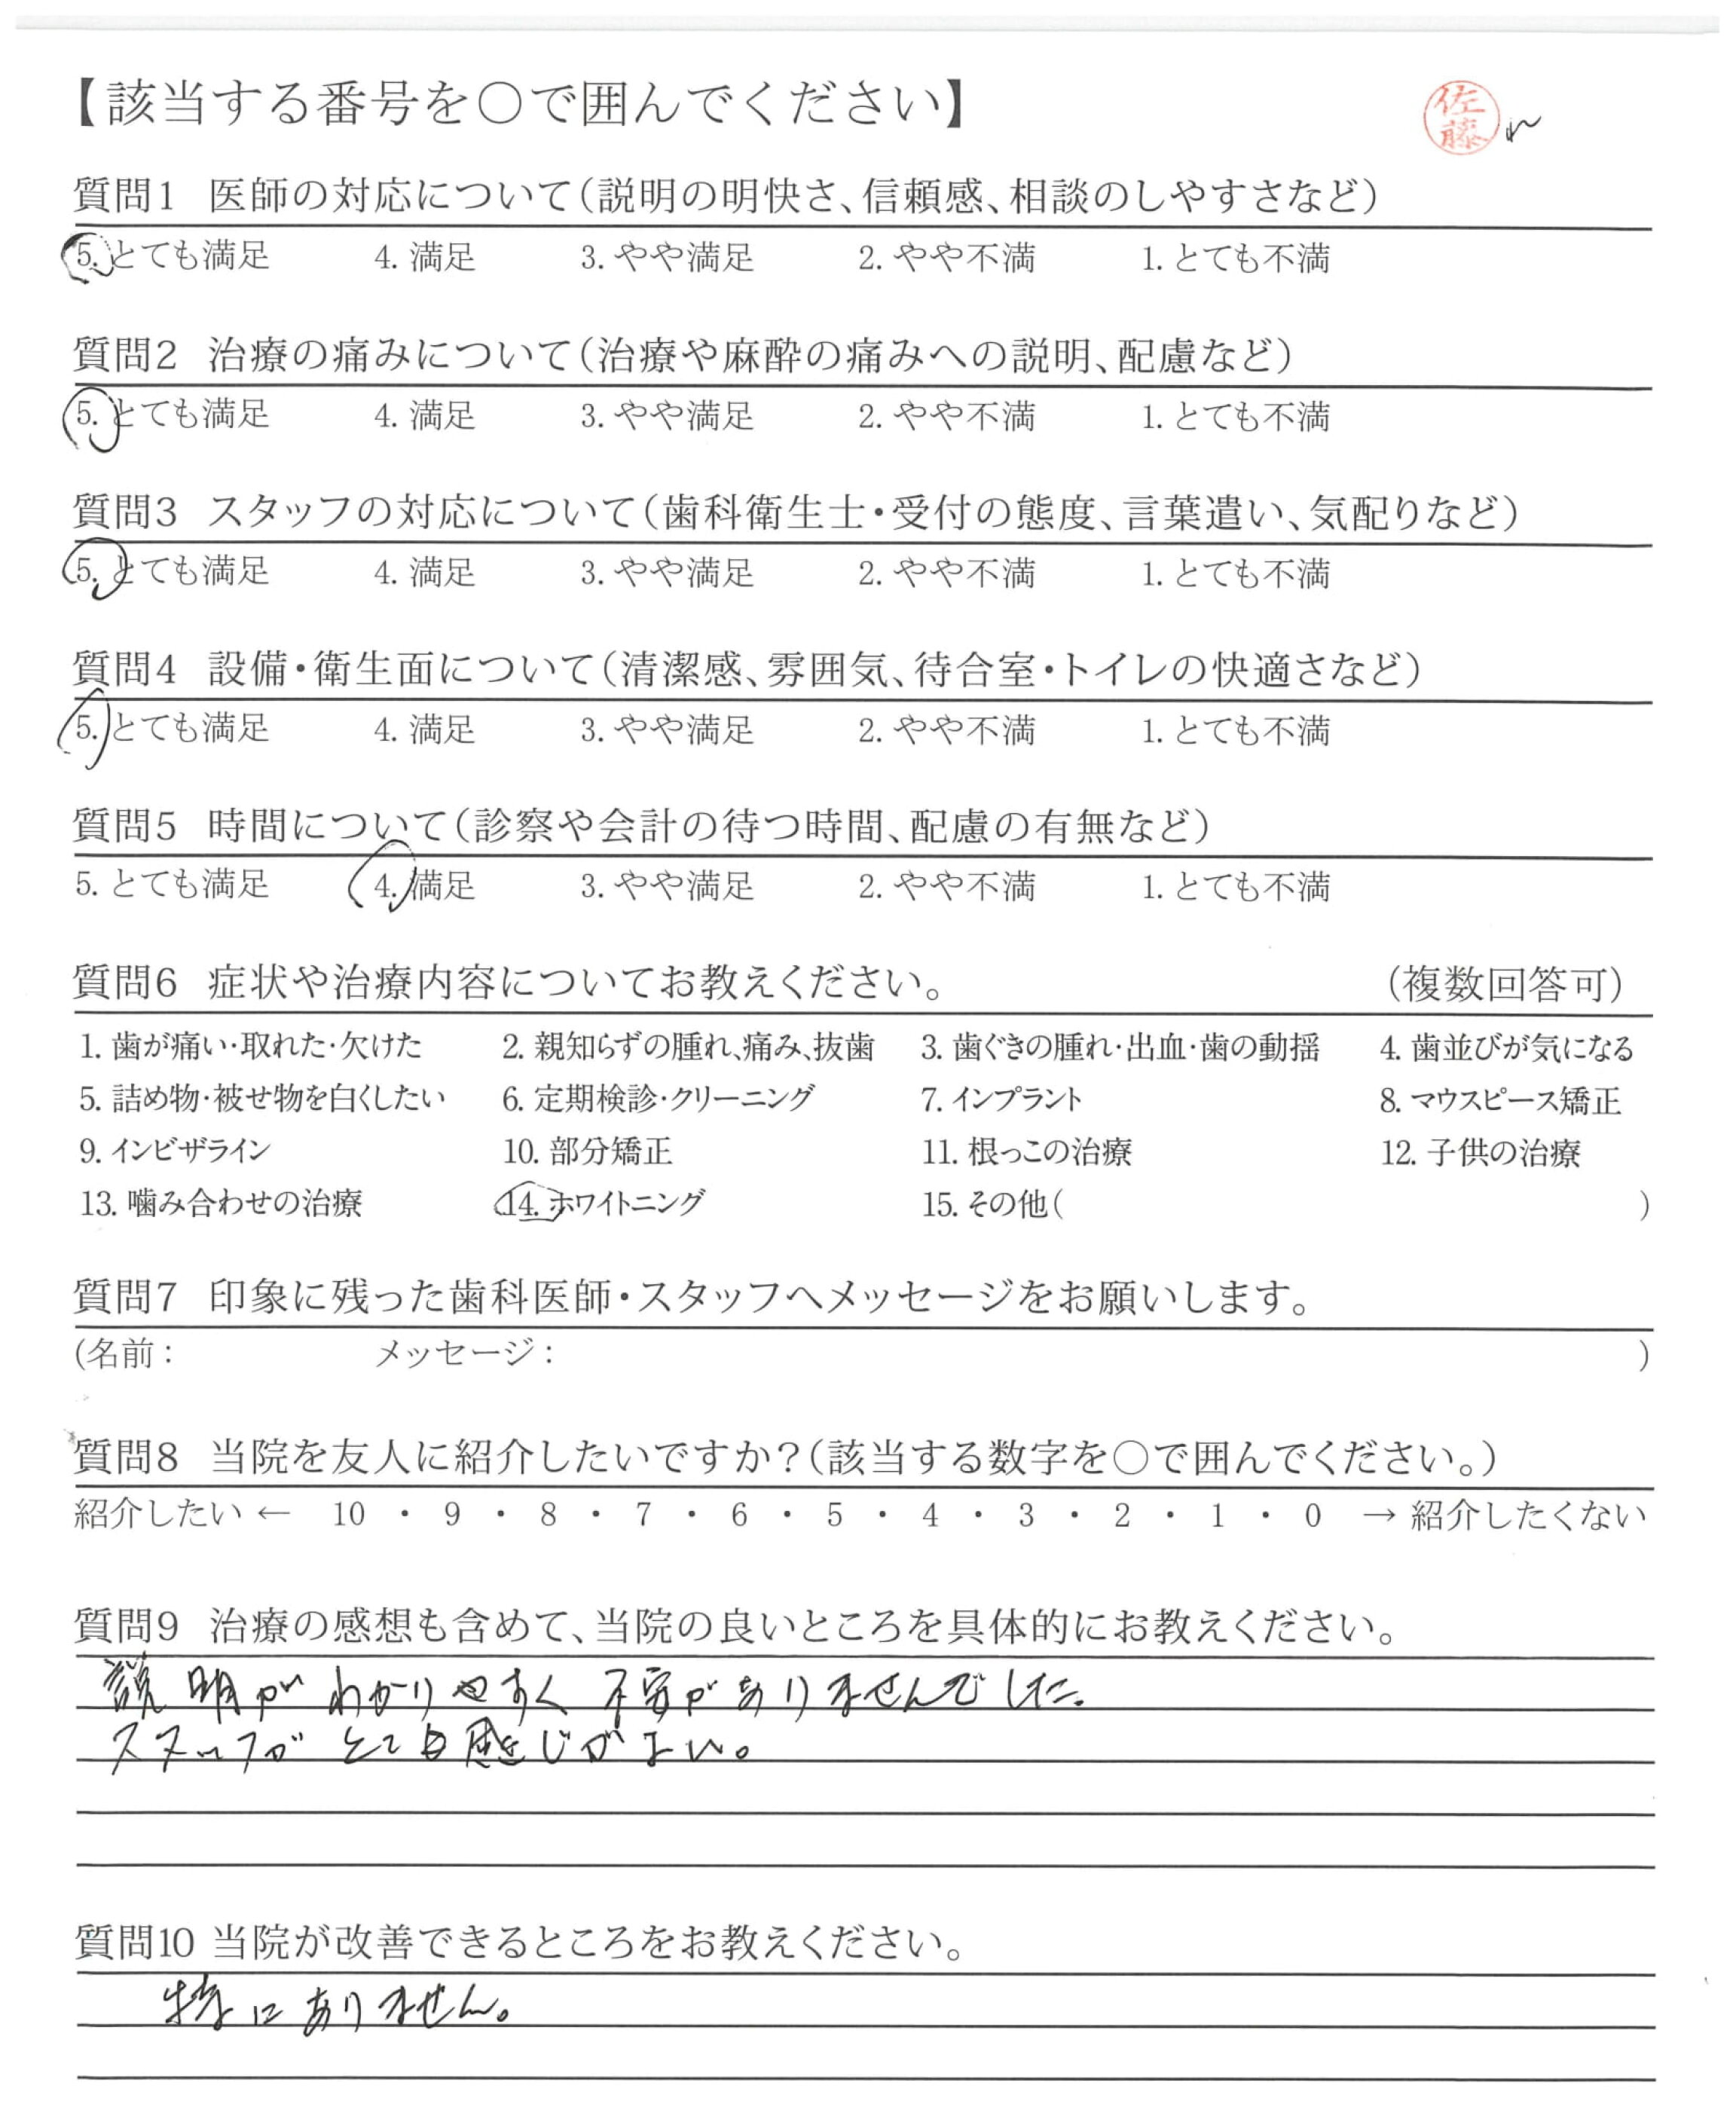 【該当する番号を○で囲んでください】
佐藤
質問1 医師の対応について（説明の明快さ、信頼感、相談のしやすさなど）
5. とても満足 4. 満足 3. やや満足 2. やや不満 1. とても不満
質問2 治療の痛みについて（治療や麻酔の痛みへの説明、配慮など）
5. とても満足 4. 満足 3. やや満足 2. やや不満 1. とても不満
質問3 スタッフの対応について（歯科衛生士・受付の態度、言葉遣い、気配りなど）
5. とても満足 4. 満足 3. やや満足 2. やや不満 1. とても不満
質問4 設備・衛生面について（清潔感、雰囲気、待合室・トイレの快適さなど）
5. とても満足 4. 満足 3. やや満足 2. やや不満 1. とても不満
質問5 時間について（診察や会計の待つ時間、配慮の有無など）
5. とても満足 4. 満足 3. やや満足 2. やや不満 1. とても不満
質問6 症状や治療内容についてお教えください。 （複数回答可）
1. 歯が痛い・取れた・欠けた 2. 親知らずの腫れ、痛み、抜歯 3. 歯ぐきの腫れ・出血・歯の動揺 4. 歯並びが気になる
5. 詰め物・被せ物を白くしたい 6. 定期検診・クリーニング 7. インプラント 8. マウスピース矯正
9. インビザライン 10. 部分矯正 11. 根っこの治療 12. 子供の治療
13. 噛み合わせの治療 14. ホワイトニング 15. その他（ ）
質問7 印象に残った歯科医師・スタッフへメッセージをお願いします。
(名前： メッセージ： )
質問8 当院を友人に紹介したいですか？（該当する数字を○で囲んでください。）
紹介したい ← 10 ・ 9 ・ 8 ・ 7 ・ 6 ・ 5 ・ 4 ・ 3 ・ 2 ・ 1 ・ 0 → 紹介したくない
質問9 治療の感想も含めて、当院の良いところを具体的にお教えください。
説明がわかりやすく不安がありませんでした。
スタッフがとても感じがよい。
質問10 当院が改善できるところをお教えください。
特にありません。